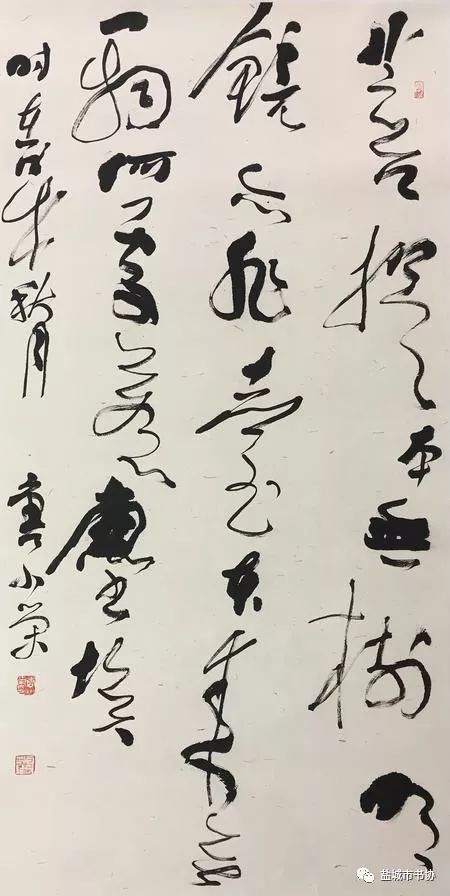 菩提本無樹明
鏡亦非臺本来無
一物何處惹塵埃
时在戊戌秋月 小榮
盐城市书协